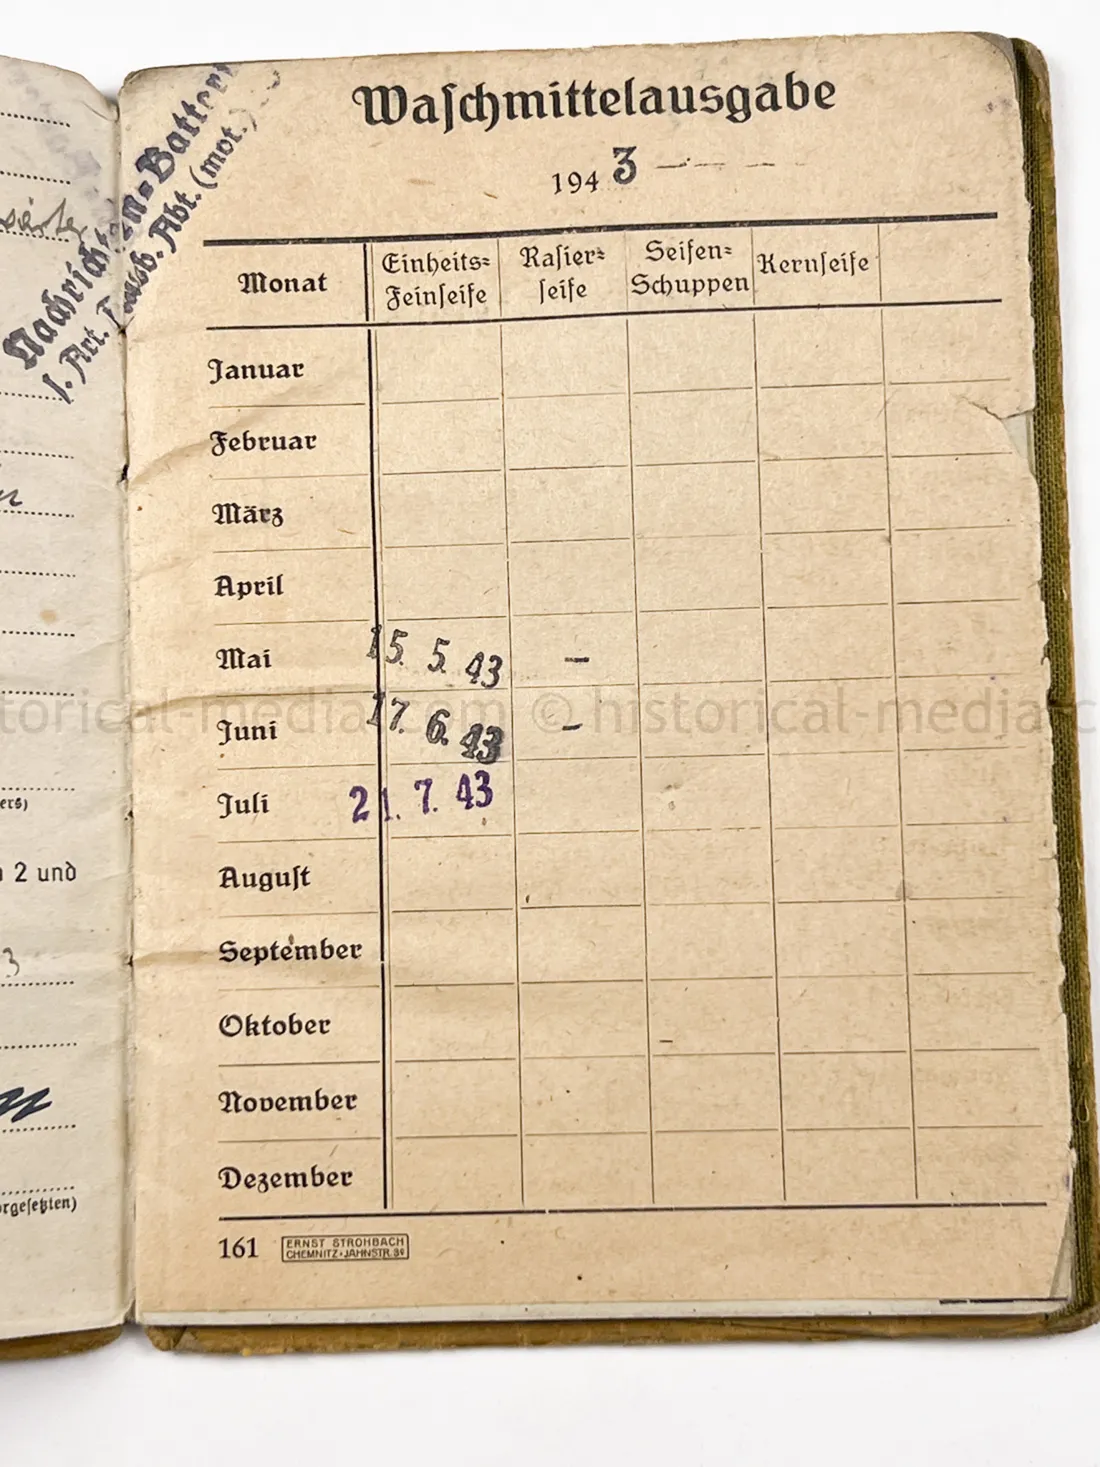 Waschmittelausgabe
194 3
Monat Einheits= Feinseife Rasier= seife Seifen= Schuppen Kernseife
Januar
Februar
März
April
Mai 15. 5. 43 –
Juni 17. 6. 43 –
Juli 21. 7. 43
August
September
Oktober
November
Dezember
161 ERNST STROHBACH
CHEMNITZ · JAHNSTR. 89
Nachrichten=Batter
1. Art. Abt. (mot.)
ers)
2 und
3
orgesetzten)
torical-media.com © historical-media.c